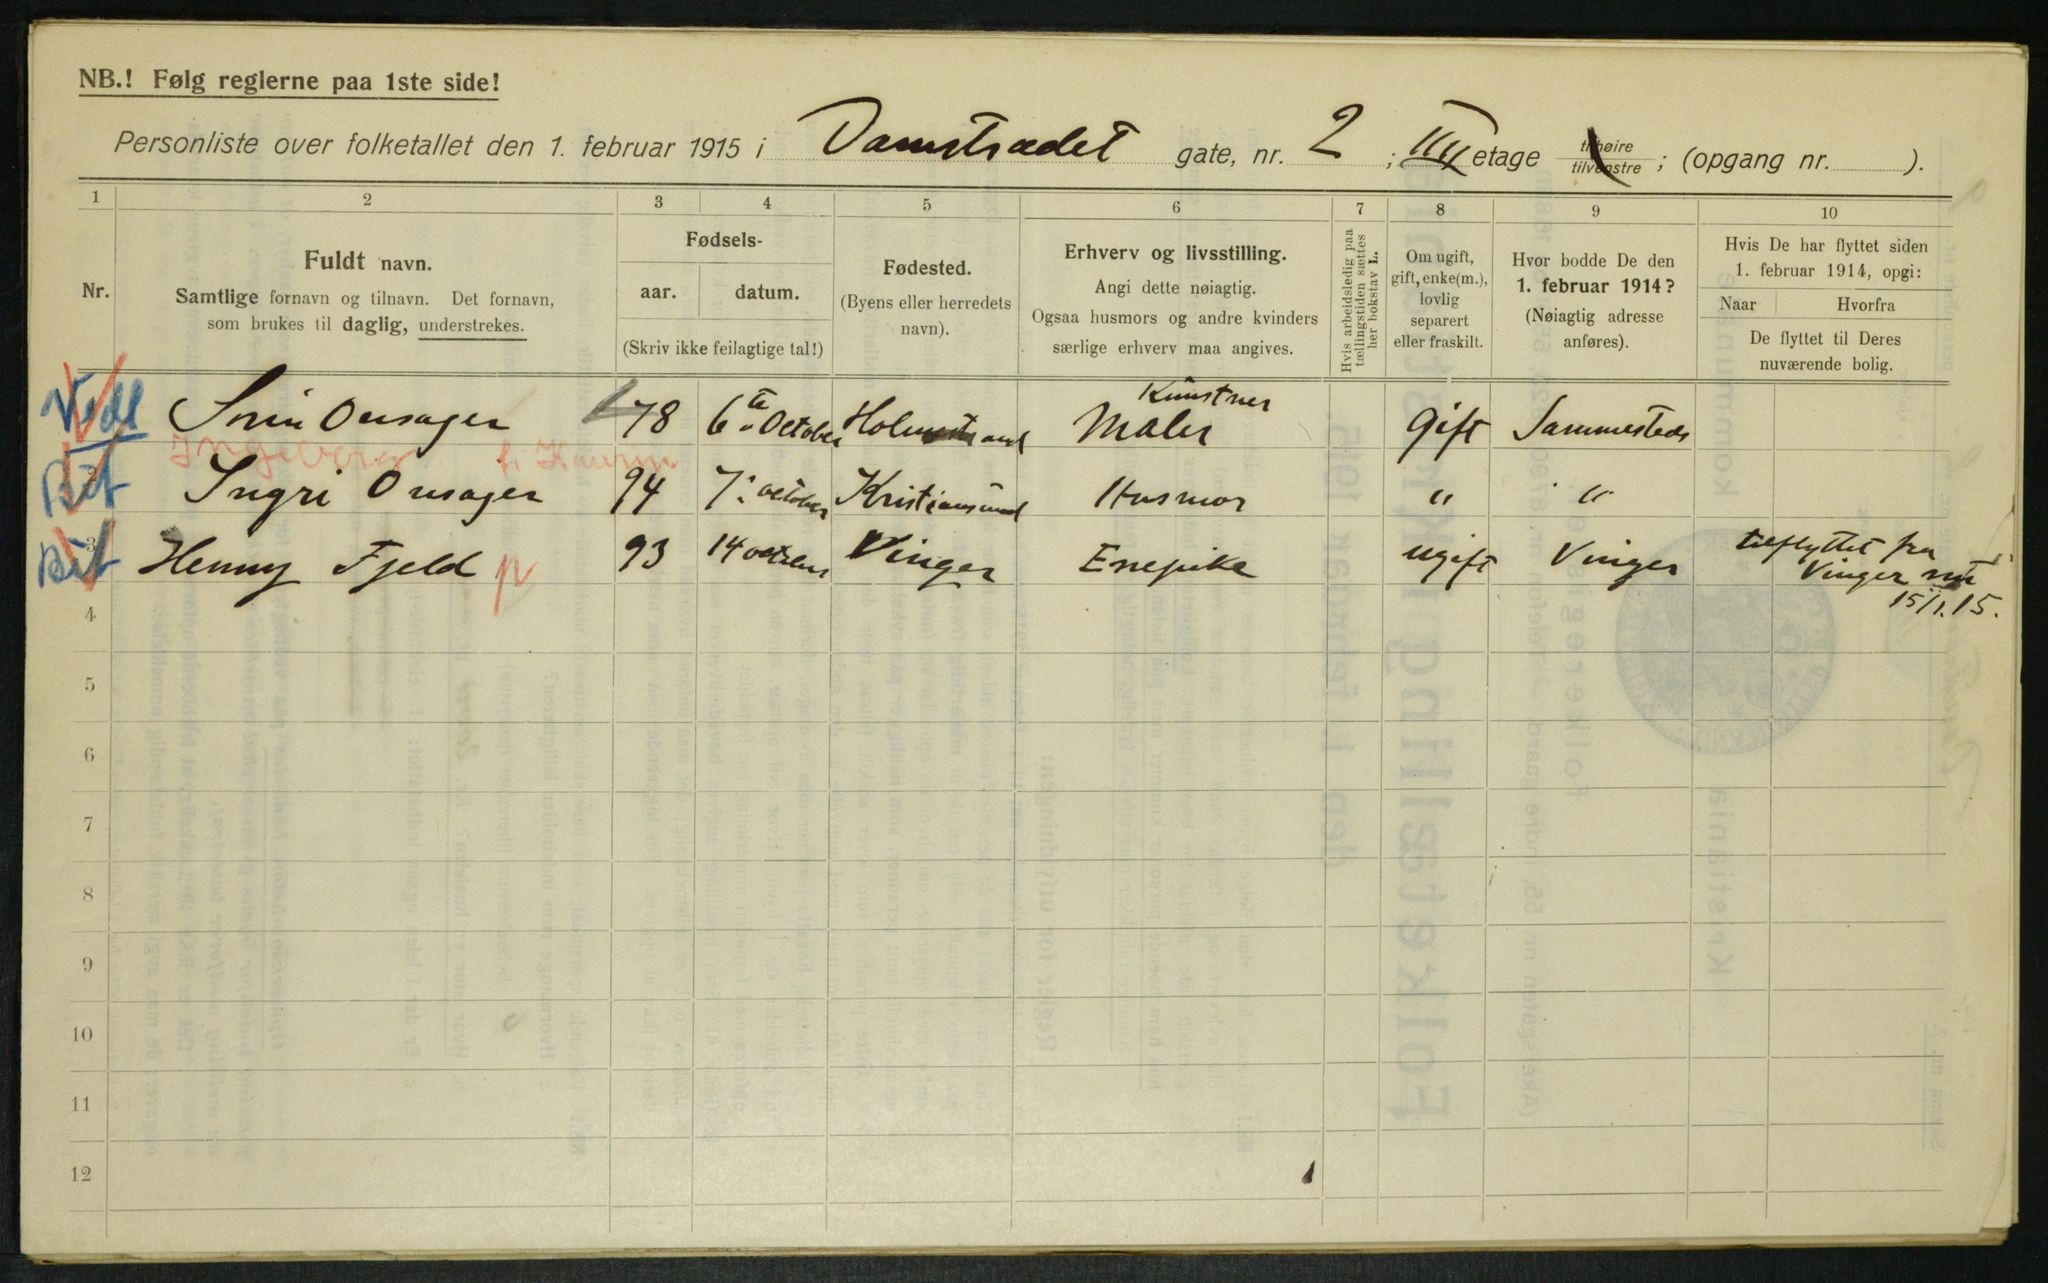 NB.! Følg reglerne paa 1ste side!
Personliste over folketallet den 1. februar 1915 i Damstrædet gate, nr. 2 ; III etage tilhøire tilvenstre ; (opgang nr. ).
1 2 3 4 5 6 7 8 9 10
Nr.
Fuldt navn.
Samtlige fornavn og tilnavn. Det fornavn,
som brukes til daglig, understrekes.
Fødsels-
aar. datum.
(Skriv ikke feilagtige tal!)
Fødested.
(Byens eller herredets
navn).
Erhverv og livsstilling.
Angi dette nøiagtig.
Ogsaa husmors og andre kvinders
særlige erhverv maa angives.
Hvis arbeidsledig paa
tællingstiden sættes
her bokstav L.
Om ugift,
gift, enke(m.),
lovlig
separert
eller fraskilt.
Hvor bodde De den
1. februar 1914?
(Nøiagtig adresse
anføres).
Hvis De har flyttet siden
1. februar 1914, opgi:
Naar Hvorfra
De flyttet til Deres
nuværende bolig.
Sørin Onsager 78 6te October Holmestrand Kunstner Maler Gift Sammesteds
Ingeborg f. Kaurin
2 Ingri Onsager 94 7. october Kristiansund Husmor " "
3 Henny Fjeld p 93 14 Vinger Enepike ugift Vinger tilflyttet fra
Vinger
15/1.15.
4
5
6
7
8
9
10
11
12